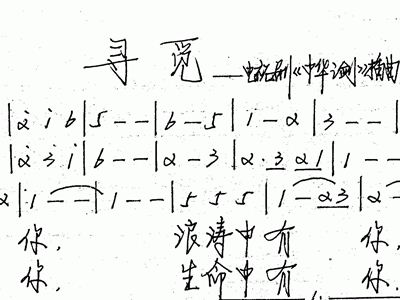 寻觅——电视剧《中华之剑》插曲
|2̇ i̇ 6|5 - -|6 - 5|1 - 2|3 - -|
|2̇ 3̇ i̇|6 - -|2 - 3|2·3 21|1 - -
2|1 - -|1 - -|5 5 5|1 - 23|2 -
你, 浪涛中有 你,
你, 生命中有 你,